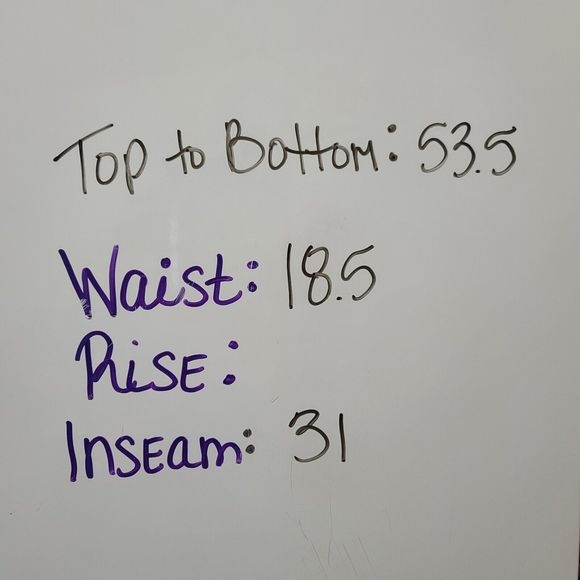 Top to Bottom: 53.5
Waist: 18.5
Rise:
Inseam: 31